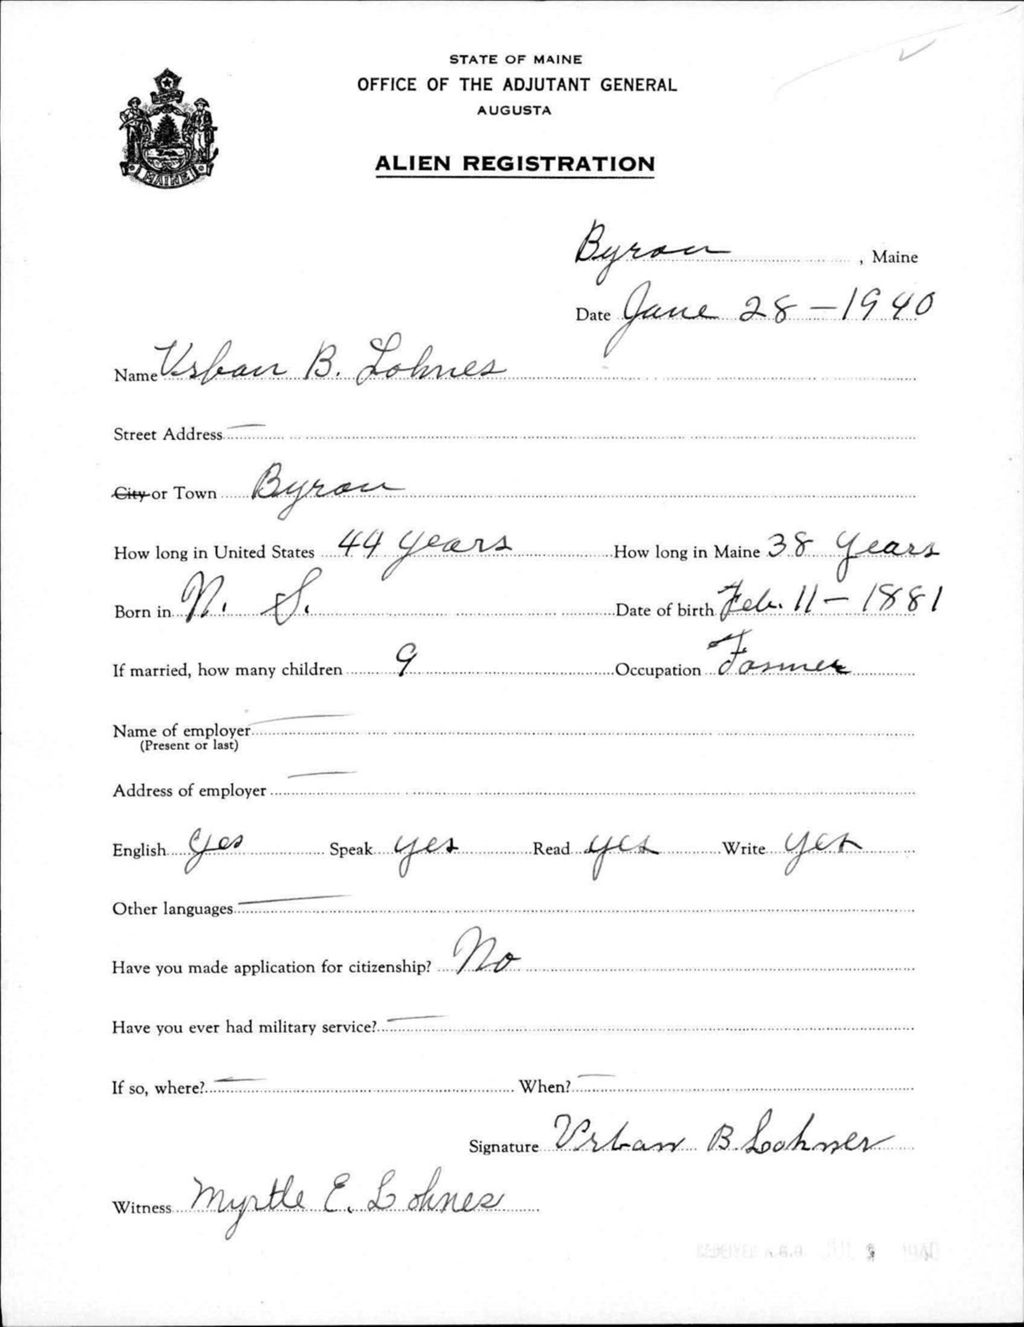 STATE OF MAINE
OFFICE OF THE ADJUTANT GENERAL
AUGUSTA
ALIEN REGISTRATION
MAINE
Byron, Maine
Date June 28-1940
Name Urban B. Lohnes
Street Address —
City or Town Byron
How long in United States 44 years How long in Maine 38 years
Born in N. S. Date of birth Feb. 11-1881
If married, how many children 9 Occupation Farmer
Name of employer —
(Present or last)
Address of employer —
English Yes Speak yes Read yes Write yes
Other languages —
Have you made application for citizenship? No
Have you ever had military service? —
If so, where? — When? —
Signature Urban B. Lohnes
Witness Myrtle E. Lohnes